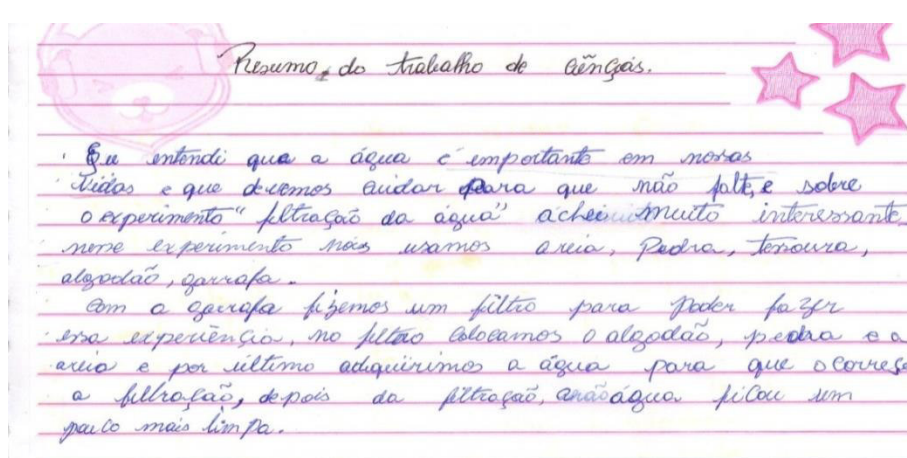 Resumo, do trabalho de Ciênçais.
Eu entendi que a água é emportante em nossas
vidas e que devemos cuidar para que não falte, e sobre
o experimento "filtração da água" achei muito interessante,
nesse experimento nois usamos areia, Pedra, tesoura,
algodão, garrafa.
Com a garrafa fizemos um filtro para poder fazer
essa experiência, no filtro colocamos o algodão, pedra e a
areia e por último adiquirimos a água para que ocorrese
a filtração, depois da filtração, água ficou um
pouco mais limpa.